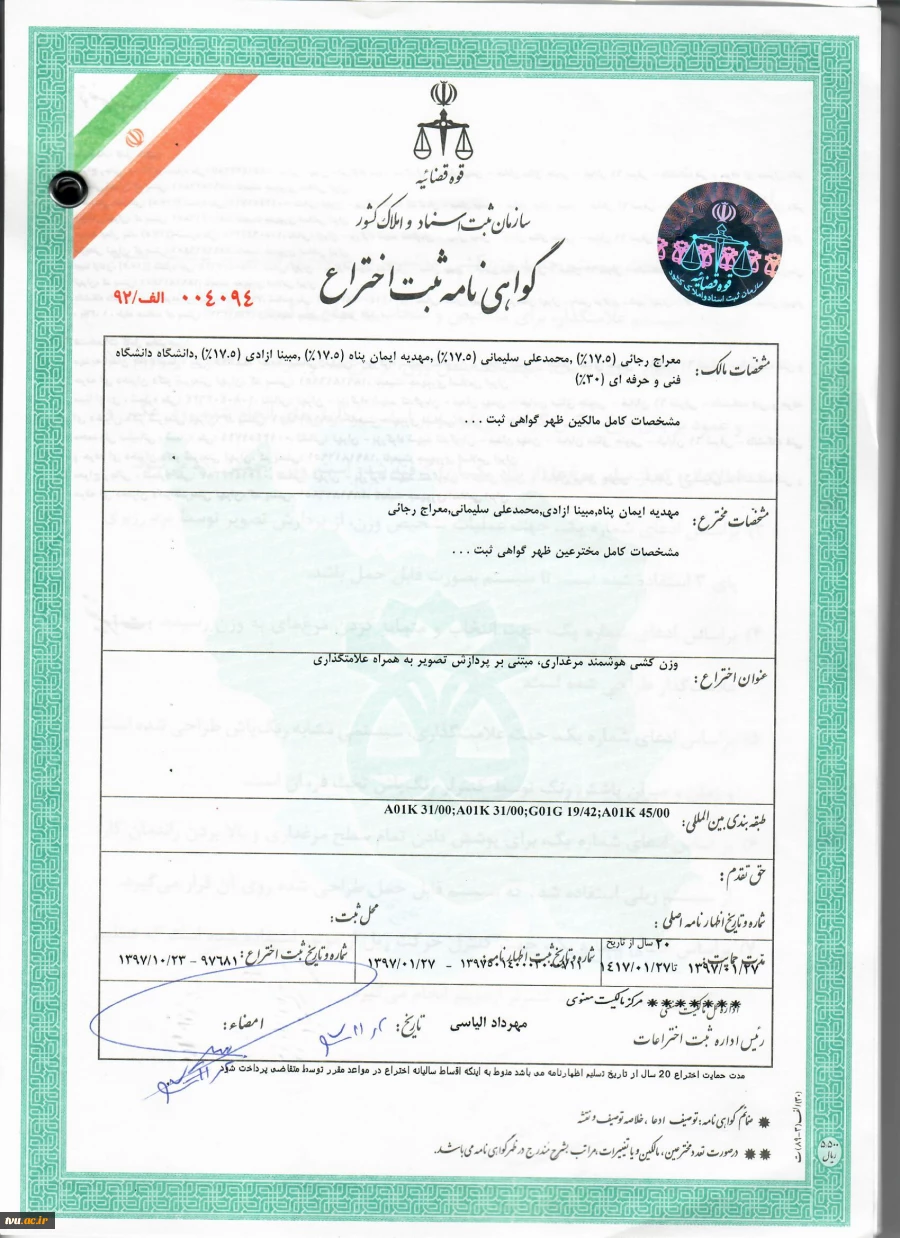 قوه قضائیه
سازمان ثبت اسناد و املاک کشور
گواهی نامه ثبت اختراع
۰۰۴۰۹۴ الف/۹۲
قوه قضائیه
سازمان ثبت اسناد و املاک کشور
مشخصات مالک: معراج رجائی (۱۷.۵٪) ,محمدعلی سلیمانی (۱۷.۵٪) ,مهدیه ایمان پناه (۱۷.۵٪) ,مبینا ازادی (۱۷.۵٪) ,دانشگاه دانشگاه
فنی و حرفه ای (۳۰٪)
مشخصات کامل مالکین ظهر گواهی ثبت ...
مشخصات مخترع: مهدیه ایمان پناه,مبینا ازادی,محمدعلی سلیمانی,معراج رجائی
مشخصات کامل مخترعین ظهر گواهی ثبت ...
عنوان اختراع: وزن کشی هوشمند مرغداری، مبتنی بر پردازش تصویر به همراه علامتگذاری
طبقه بندی بین المللی: A01K 31/00;A01K 31/00;G01G 19/42;A01K 45/00
حق تقدم:
شماره و تاریخ اظهارنامه اصلی: محل ثبت:
مدت حمایت: ۲۰ سال از تاریخ
۱۳۹۷/۰۱/۲۷ تا ۱۴۱۷/۰۱/۲۷
شماره و تاریخ ثبت اظهارنامه: ۱۳۹۷/۰۱/۲۷ -
شماره و تاریخ ثبت اختراع: ۹۷۶۸۱ - ۱۳۹۷/۱۰/۲۳
مرکز مالکیت معنوی
رئیس اداره ثبت اختراعات مهرداد الیاسی تاریخ: امضاء:
مدت حمایت اختراع 20 سال از تاریخ تسلیم اظهارنامه می باشد منوط به اینکه اقساط سالیانه اختراع در مواعد مقرر توسط متقاضی پرداخت شود
✱ ضمائم گواهی نامه: توصیف ادعا، خلاصه توصیف و نقشه
✱✱ درصورت تعدد مخترعین، مالکین و یا تغییرات، مراتب بشرح مندرج در ظهر گواهی نامه می باشد.
۵۵۰۰ ریال
tvu.ac.ir